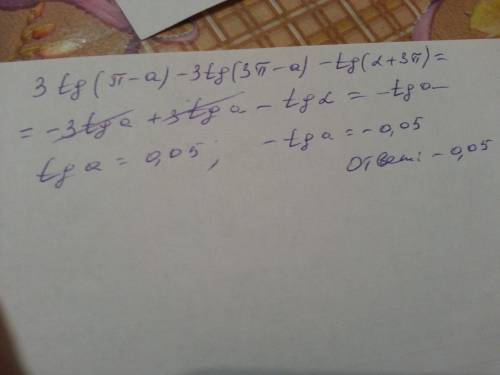 3 tg(π-a) -3tg(3π-a) -tg(α+3π)=
= -3tg a + 3tg a - tg α = -tg a
tg a = 0,05; -tg a = -0,05
Ответ: -0,05